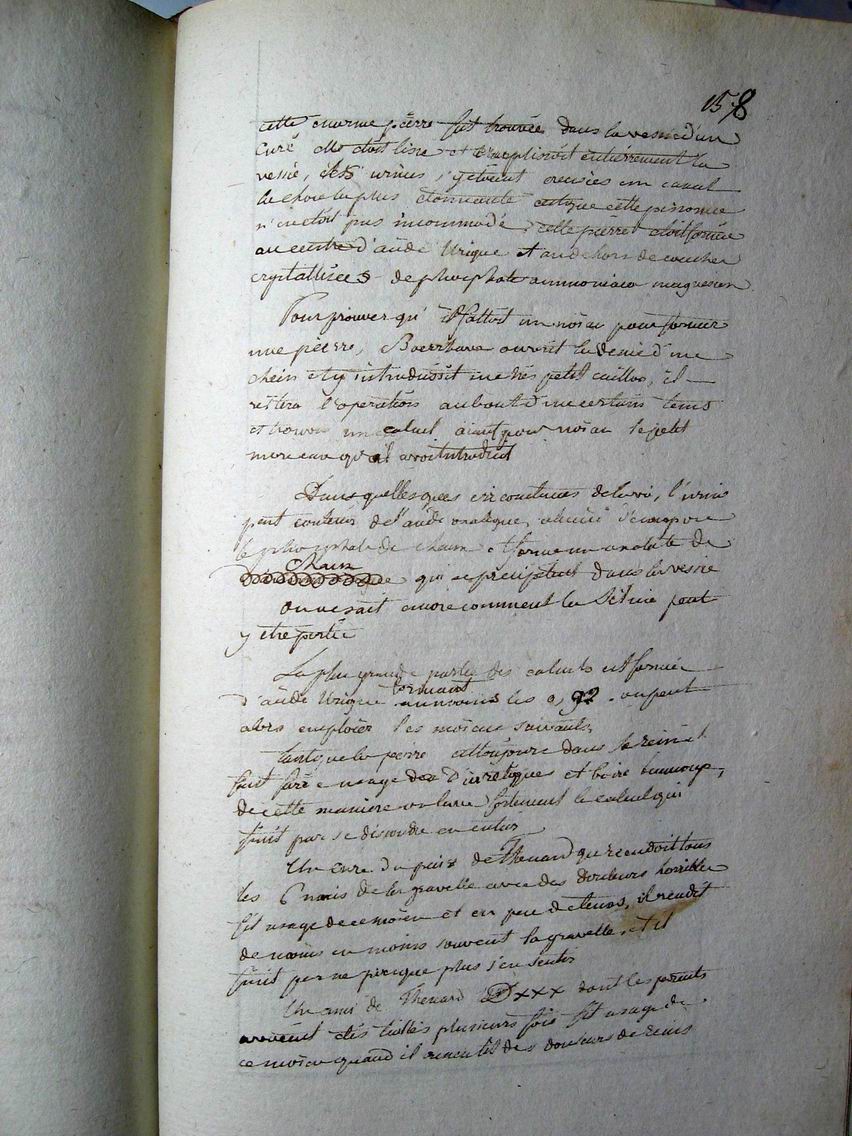 158
cette enorme pierre fut trouvée dans la vessie d'un
Curé elle etoit lisse et remplissoit entierrement la
vessie, les urines s'y etoient creusées un canal
la chose la plus etonnante est que cette personne
n'en etoit pas incommodé, cette pierre etoit formée
au centre d'acide Urique et au dehors de couches
crystallisees de phosphate ammoniaco magnesien
Pour prouver qu'il falloit un noiau pour former
une pierre, Boerrhave ouvrit la vessie d'un
chein et y introduisit un très petit caillou, il
reitera l'operation au bout d'un certain tems
et trouva un calcul aiant pour noiau le petit
morceau qu'il avoit introduit
Dans quelques circonstances de la vie, l'urine
peut contenir de l'acide oxalique, alors il decompose
le phosphate de chaux et forme un oxalate de
chaux qui se precipitent dans la vessie
On ne sait encore comment la Silice peut
y etre portée
La plus grande partie des calculs est formée
d'acide Urique formant au moins les 0,92. on peut
alors emploier les moiens suivants,
tant que la pierre est toujours dans le rein il
faut faire usage des Diuretiques et boire beaucoup,
de cette maniere on lave fortement le calcul qui
finit par se dissoudre en entier
Un Cure du païs de Thenard qui rendoit tous
les 6 mois de la gravelle avec des douleurs horribles
fit usage de ce moien et en peu de tems, il rendit
de moins en moins souvent la gravelle, et il
finit par ne presque plus s'en sentir
Un ami de Thenard Dxxx dont les parents
avoient étés taillés plusieurs fois fit usage de
ce moien quand il ressentit des douleurs de reins